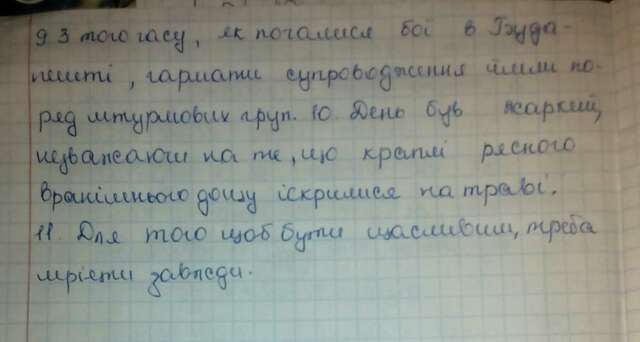 9 З того часу, як почалися бої в Буда-
пешті, гармати супроводження йшли по-
ряд штурмових груп. 10. День був жаркий,
незважаючи на те, що краплі рясного
вранішнього дощу іскрилися на траві.
11. Для того щоб бути щасливим, треба
мріяти завжди.